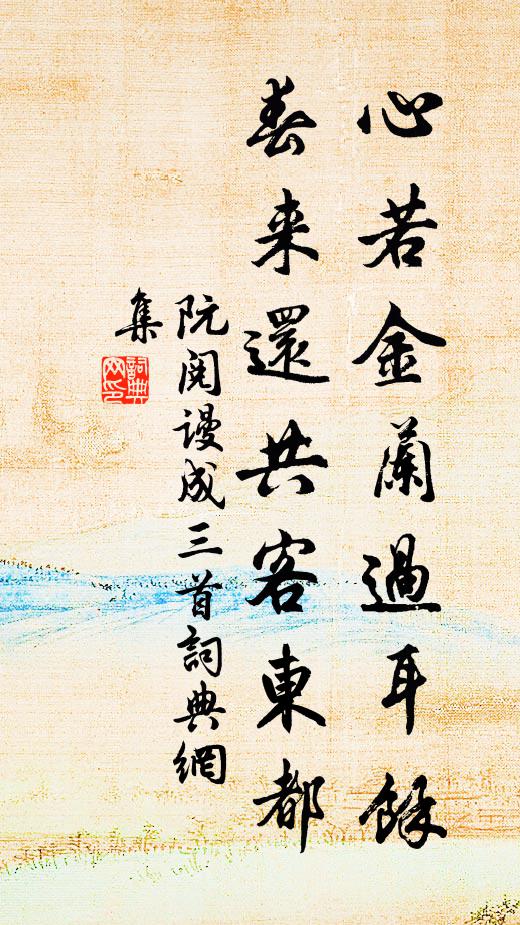 心若金蘭過耳餘
春来還共客東都
阮閱謾成三首詞典網
集
詞典网印